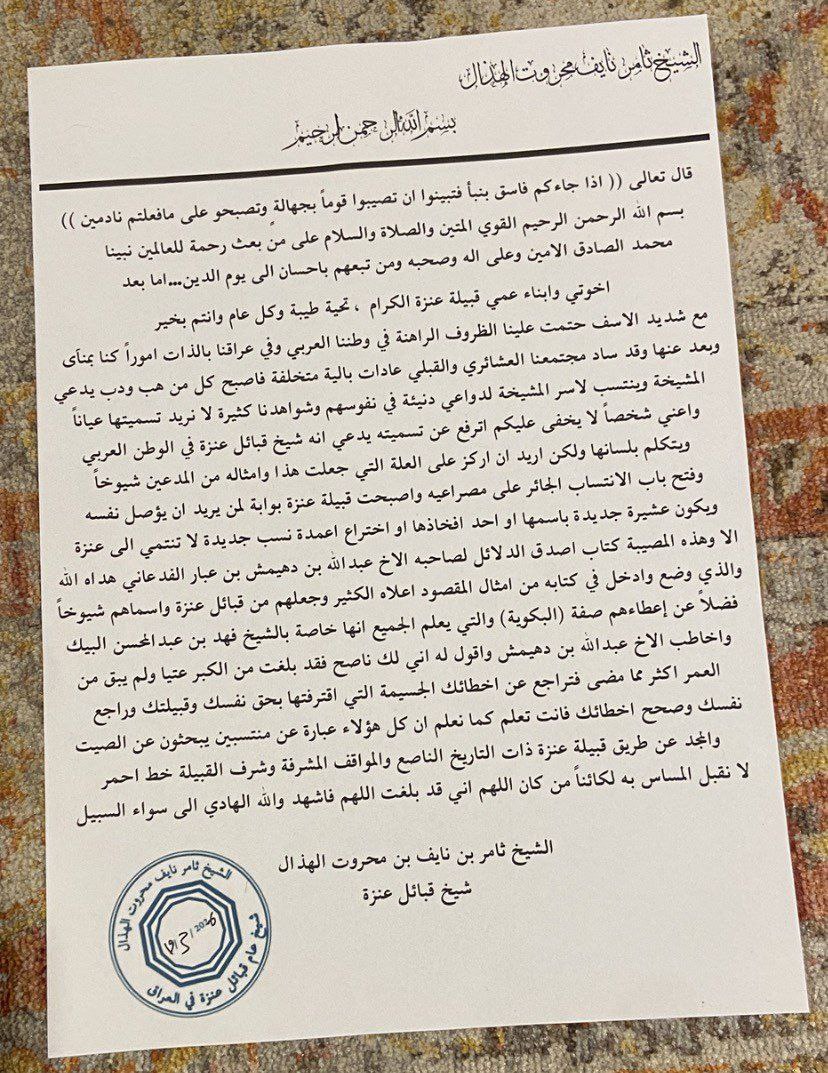 الشيخ ثامر نايف محروت الهذال
بسم الله الرحمن الرحيم
قال تعالى (( اذا جاءكم فاسق بنبأ فتبينوا ان تصيبوا قوماً بجهالةٍ وتصبحو على مافعلتم نادمين ))
بسم الله الرحمن الرحيم القوي المتين والصلاة والسلام على من بعث رحمة للعالمين نبينا
محمد الصادق الامين وعلى اله وصحبه ومن تبعهم باحسان الى يوم الدين...اما بعد
اخوتي وابناء عمي قبيلة عنزة الكرام ، تحية طيبة وكل عام وانتم بخير
مع شديد الاسف حتمت علينا الظروف الراهنة في وطننا العربي وفي عراقنا بالذات اموراً كنا بمنآى
وبعد عنها وقد ساد مجتمعنا العشائري والقبلي عادات بالية متخلفة فاصبح كل من هب ودب يدعي
المشيخة وينتسب لاسر المشيخة لدواعي دنيئة في نفوسهم وشواهدنا كثيرة لا نريد تسميتها عياناً
واعني شخصاً لا يخفى عليكم اترفع عن تسميته يدعي انه شيخ قبائل عنزة في الوطن العربي
ويتكلم بلسانها ولكن اريد ان اركز على العلة التي جعلت هذا وامثاله من المدعين شيوخاً
وفتح باب الانتساب الجائر على مصراعيه واصبحت قبيلة عنزة بوابة لمن يريد ان يؤصل نفسه
ويكون عشيرة جديدة باسمها او احد افخاذها او اختراع اعمدة نسب جديدة لا تنتمي الى عنزة
الا وهذه المصيبة كتاب اصدق الدلائل لصاحبه الاخ عبدالله بن دهيمش بن عبار الفدعاني هداه الله
والذي وضع وادخل في كتابه من امثال المقصود اعلاه الكثير وجعلهم من قبائل عنزة واسماهم شيوخاً
فضلاً عن إعطاءهم صفة (البكوية) والتي يعلم الجميع انها خاصة بالشيخ فهد بن عبدالمحسن البيك
واخاطب الاخ عبدالله بن دهيمش واقول له اني لك ناصح فقد بلغت من الكبر عتيا ولم يبق من
العمر اكثر مما مضى فتراجع عن اخطائك الجسيمة التي اقترفتها بحق نفسك وقبيلتك وراجع
نفسك وصحح اخطائك فانت تعلم كما نعلم ان كل هؤلاء عبارة عن منتسبين يبحثون عن الصيت
والمجد عن طريق قبيلة عنزة ذات التاريخ الناصع والمواقف المشرفة وشرف القبيلة خط احمر
لا نقبل المساس به لكائناً من كان اللهم اني قد بلغت اللهم فاشهد والله الهادي الى سواء السبيل
الشيخ ثامر بن نايف بن محروت الهذال
شيخ قبائل عنزة
الشيخ ثامر نايف محروت الهذال
شيخ عام قبائل عنزة في العراق